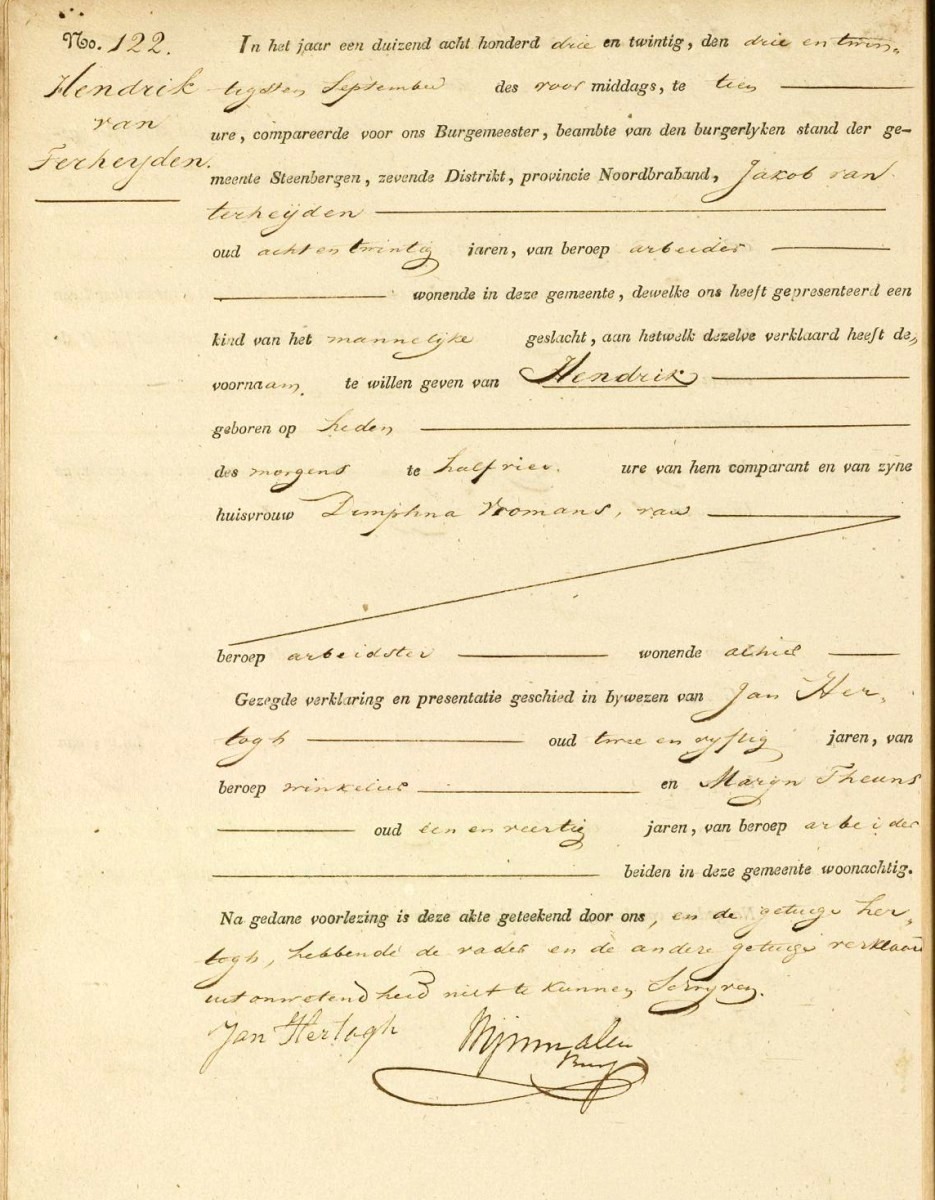 No. 122.
Hendrik
van
Terheyden.
In het jaar een duizend acht honderd drie en twintig, den drie en twin-
tigsten September des voor middags, te tien
ure, compareerde voor ons Burgemeester, beambte van den burgerlyken stand der ge-
meente Steenbergen, zevende Distrikt, provincie Noordbraband, Jakob van
terheijden
oud acht en twintig jaren, van beroep arbeider
wonende in deze gemeente, dewelke ons heeft gepresenteerd een
kind van het mannelijke geslacht, aan hetwelk dezelve verklaard heeft de
voornaam te willen geven van Hendrik
geboren op heden
des morgens te half vier ure van hem comparant en van zyne
huisvrouw Dimphna Vromans, van
beroep arbeidster wonende alhier
Gezegde verklaring en presentatie geschied in bywezen van Jan Her-
togh oud twee en vyftig jaren, van
beroep winkelier en Maryn Theuns
oud een en veertig jaren, van beroep arbeider
beiden in deze gemeente woonachtig.
Na gedane voorlezing is deze akte geteekend door ons, en de getuige her-
togh, hebbende de vader en de andere getuige verklaard
uit onwetendheid niet te kunnen schryven.
Jan Hertogh
Burg